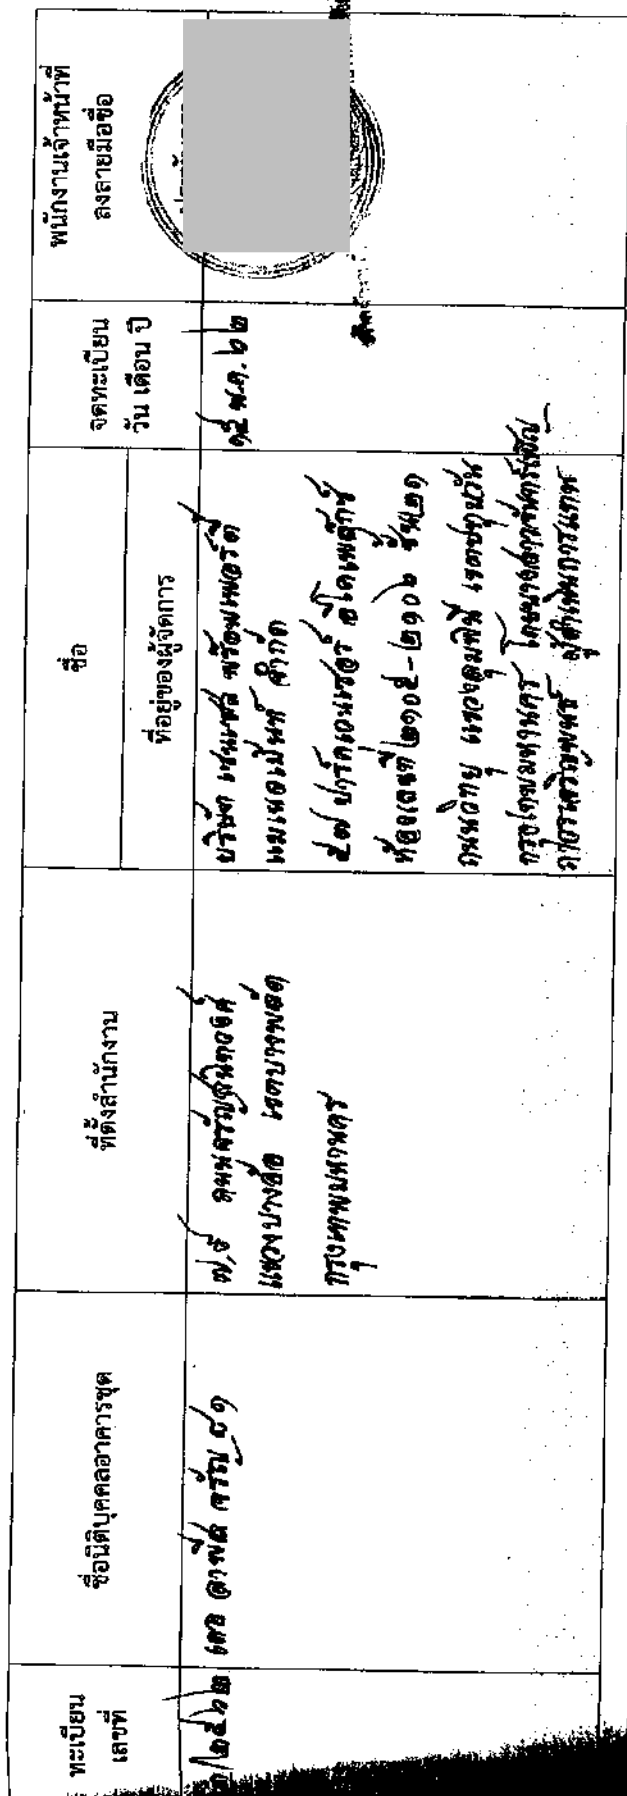 ทะเบียน
เลขที่
ชื่อนิติบุคคลอาคารชุด
ที่ตั้งสำนักงาน
ชื่อ
ที่อยู่ของผู้จัดการ
จดทะเบียน
วัน เดือน ปี
พนักงานเจ้าหน้าที่
ลงลายมือชื่อ
/๒๕๖๒
เดอ ลาพีส จรัญ ๘๑
ถนนจรัญสนิทวงศ์
แขวงบางอ้อ เขตบางพลัด
กรุงเทพมหานคร
บริษัท พร้อมเพอร์ตี้
แมเนจเม้นท์ จำกัด
๕๗ ปาร์คเวนเชอร์ อีโคเพล็กซ์
ห้องเลขที่ ๒๑๐๕-๒๑๐๖ ชั้น ๒๑
ถนนวิทยุ แขวงลุมพินี เขตปทุมวัน
กรุงเทพมหานคร โดยนางสาว
ผู้ดำเนินการแทน
๑๕ พ.ค. ๖๒